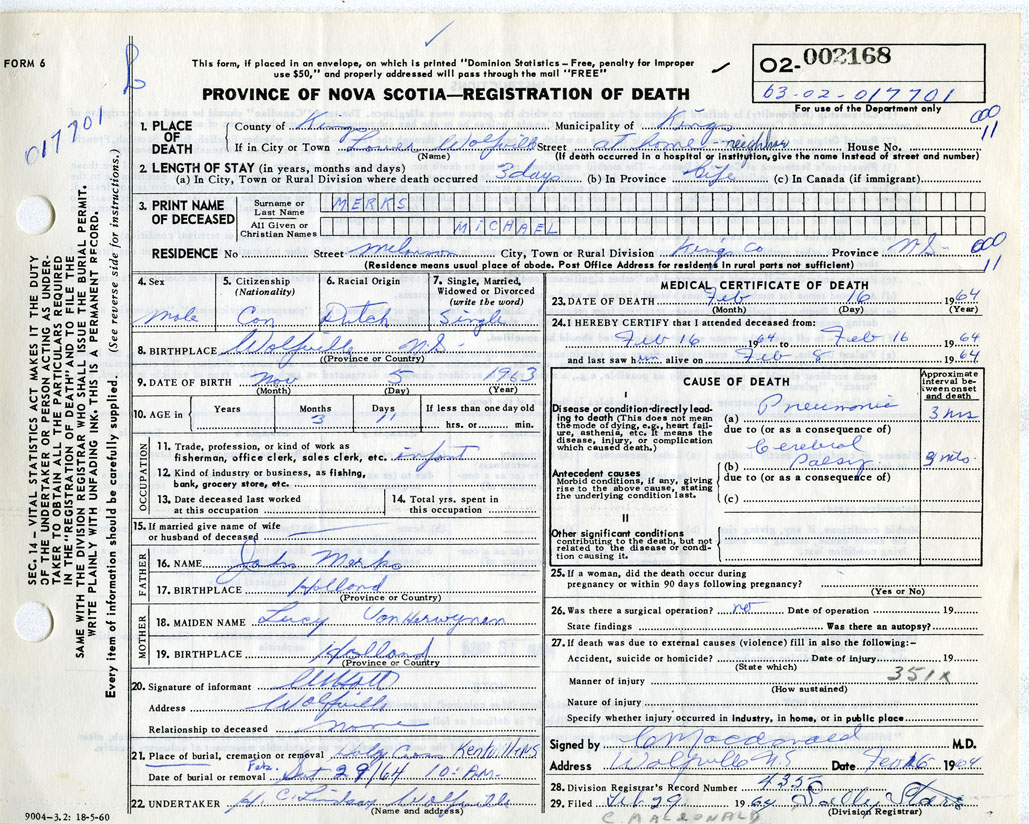 FORM 6
This form, if placed in an envelope, on which is printed "Dominion Statistics – Free, penalty for improper
use $50," and properly addressed will pass through the mail "FREE"
O2-002168
63-02-017701
For use of the Department only
PROVINCE OF NOVA SCOTIA—REGISTRATION OF DEATH
017701
SEC. 14 – VITAL STATISTICS ACT MAKES IT THE DUTY
OF THE UNDERTAKER OR PERSON ACTING AS UNDER-
TAKER TO OBTAIN ALL THE PARTICULARS REQUIRED
IN THE "REGISTRATION OF DEATH" AND TO FILE THE
SAME WITH THE DIVISION REGISTRAR WHO SHALL ISSUE THE BURIAL PERMIT.
WRITE PLAINLY WITH UNFADING INK. THIS IS A PERMANENT RECORD.
Every item of information should be carefully supplied. (See reverse side for instructions.)
1. PLACE OF DEATH
County of Kings Municipality of Kings 000 11
If in City or Town Lower Wolfville Street at home - neighbor House No.
(Name) (If death occurred in a hospital or institution, give the name instead of street and number)
2. LENGTH OF STAY (in years, months and days)
(a) In City, Town or Rural Division where death occurred 3 days (b) In Province Life (c) In Canada (if immigrant)
3. PRINT NAME OF DECEASED
Surname or Last Name MERKS
All Given or Christian Names MICHAEL
RESIDENCE No Street City, Town or Rural Division Kings Co Province N.S. 000 11
(Residence means usual place of abode. Post Office Address for residents in rural parts not sufficient)
4. Sex Male
5. Citizenship (Nationality) Can
6. Racial Origin Dutch
7. Single, Married, Widowed or Divorced (write the word) Single
8. BIRTHPLACE Wolfville N.S.
(Province or Country)
9. DATE OF BIRTH Nov 5 1963
(Month) (Day) (Year)
10. AGE in Years Months 3 Days 11 If less than one day old
hrs. or min.
OCCUPATION
11. Trade, profession, or kind of work as
fisherman, office clerk, sales clerk, etc. Infant
12. Kind of industry or business, as fishing,
bank, grocery store, etc.
13. Date deceased last worked
at this occupation
14. Total yrs. spent in
this occupation
15. If married give name of wife
or husband of deceased
FATHER
16. NAME John Merks
17. BIRTHPLACE Holland
(Province or Country)
MOTHER
18. MAIDEN NAME Lucy
19. BIRTHPLACE Holland
(Province or Country
20. Signature of informant
Address Wolfville
Relationship to deceased None
21. Place of burial, cremation or removal Holy Cross Kentville NS
Date of burial or removal Feb. 29/64 10: AM
22. UNDERTAKER H. C. Lindsay Wolfville
(Name and address)
9004–3.2: 18-5-60
MEDICAL CERTIFICATE OF DEATH
23. DATE OF DEATH Feb 16 1964
(Month) (Day) (Year)
24. I HEREBY CERTIFY that I attended deceased from:
Feb 16 1964 to Feb 16 1964
and last saw him alive on Feb 8 1964
CAUSE OF DEATH
Approximate interval between onset and death
I
Disease or condition-directly lead-
ing to death (This does not mean
the mode of dying, e.g., heart fail-
ure, asthenia, etc. It means the
disease, injury, or complication
which caused death.)
(a) Pneumonia 3 hrs
due to (or as a consequence of)
Antecedent causes
Morbid conditions, if any, giving
rise to the above cause, stating
the underlying condition last.
(b) Cerebral Palsy
due to (or as a consequence of)
(c)
II
Other significant conditions
contributing to the death, but not
related to the disease or condi-
tion causing it.
25. If a woman, did the death occur during
pregnancy or within 90 days following pregnancy?
(Yes or No)
26. Was there a surgical operation? Date of operation 19
State findings Was there an autopsy?
27. If death was due to external causes (violence) fill in also the following:–
Accident, suicide or homicide? Date of injury 19
(State which)
Manner of injury 351x
(How sustained)
Nature of injury
Specify whether injury occurred in industry, in home, or in public place
Signed by C Macdonald M.D.
Address Wolfville NS Date Feb 16 1964
28. Division Registrar's Record Number 4355
29. Filed Feb 29 1964
(Division Registrar)
C. MACDONALD